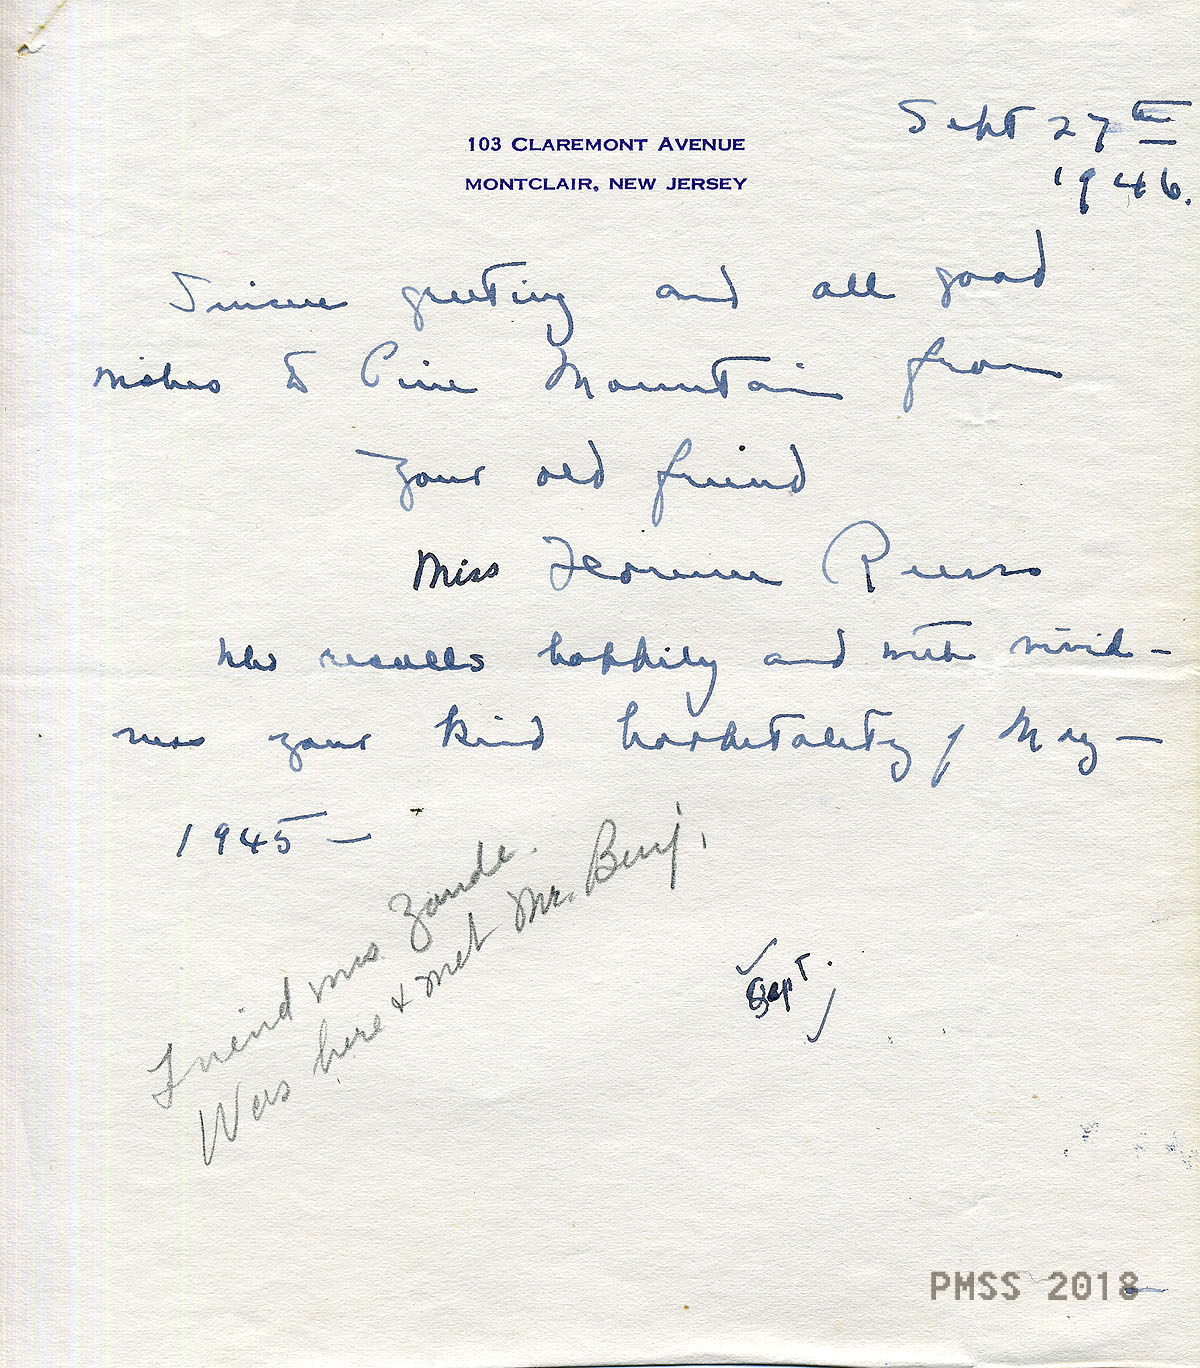 Sept 27th
1946.
103 CLAREMONT AVENUE
MONTCLAIR, NEW JERSEY
Sincere greeting and all good
wishes to Pine Mountain from
your old friend
Miss Florence Reeves
who recalls happily and with vivid-
ness your kind hospitality of May—
1945—
Friend Mrs. Zande.
Was here & met Mr. Benj.
Sept.
PMSS 2018